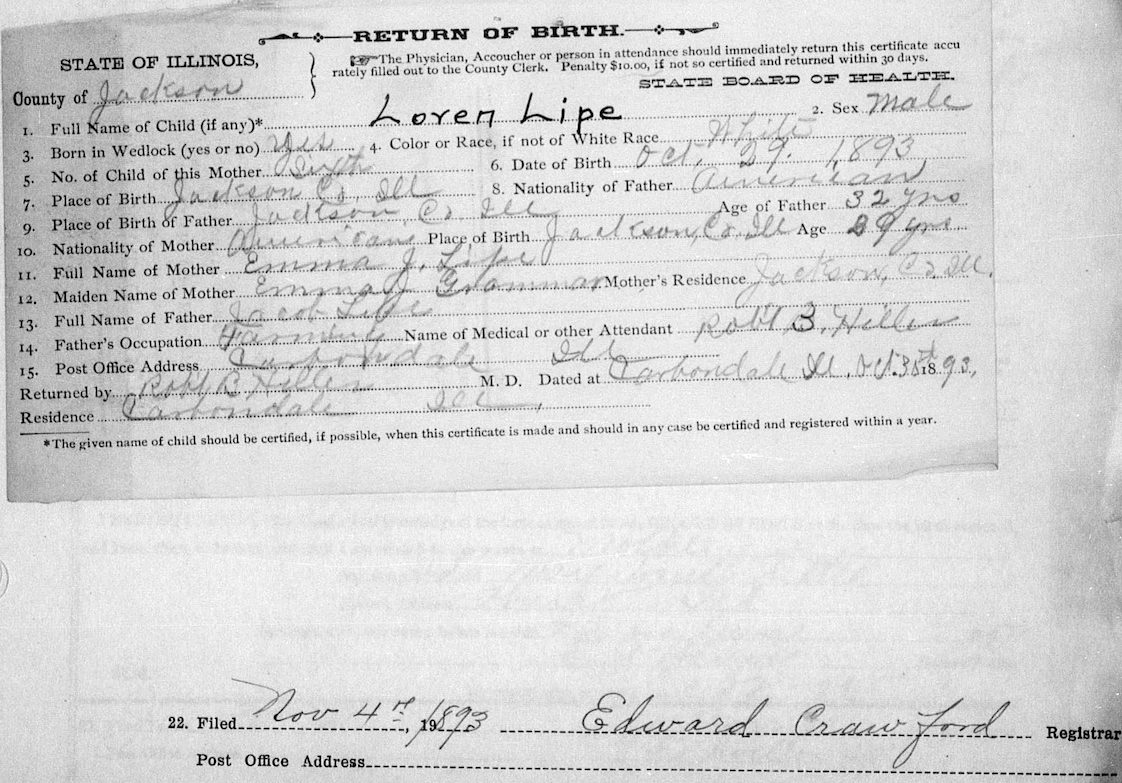 RETURN OF BIRTH.
STATE OF ILLINOIS,
County of Jackson
The Physician, Accoucher or person in attendance should immediately return this certificate accu
rately filled out to the County Clerk. Penalty $10.00, if not so certified and returned within 30 days.
STATE BOARD OF HEALTH.
1. Full Name of Child (if any)* Loren Lipe 2. Sex Male
3. Born in Wedlock (yes or no) Yes 4. Color or Race, if not of White Race White
5. No. of Child of this Mother Sixth 6. Date of Birth Oct, 29. 1893,
7. Place of Birth Jackson Co, Ill 8. Nationality of Father American
9. Place of Birth of Father Jackson Co Ill Age of Father 32 yrs
10. Nationality of Mother American Place of Birth Jackson, Co, Ill Age 29 yrs
11. Full Name of Mother Emma J. Lipe
12. Maiden Name of Mother Emma J Grammar Mother's Residence Jackson, Co, Ill.
13. Full Name of Father Jacob Lipe
14. Father's Occupation Farming Name of Medical or other Attendant Robt B. Hiller
15. Post Office Address Carbondale Ill
Returned by Robt B Hiller M. D. Dated at Carbondale Ill, Oct. 1893,
Residence Carbondale Ill,
*The given name of child should be certified, if possible, when this certificate is made and should in any case be certified and registered within a year.
22. Filed Nov 4th, 1893 Edward Crawford Registrar
Post Office Address